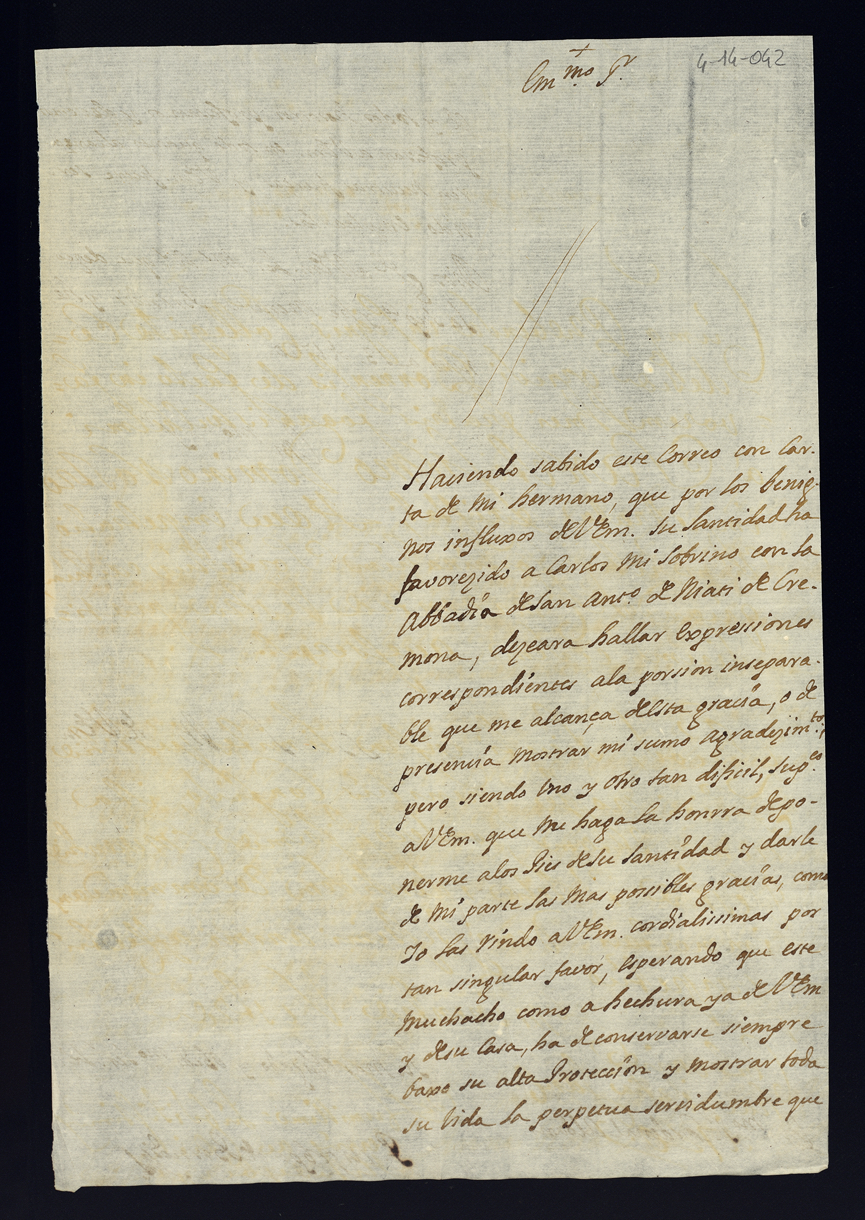 4-14-042
Em.mo S.r
Haviendo sabido este Correo con Car-
ta de Mi hermano, que por los benig-
nos influxos de VEm. su Santidad ha
favorezido a Carlos Mi Sobrino con la
Abbadia de San Ant.o de Viati de Cre-
mona, dezeara hallar Expressiones
correspondientes ala porsion insepara-
ble que me alcança desta gracia, o de
presencia Mostrar mi sumo Agradezim.to,
pero siendo Uno y Otro tan dificil, sup.co
a VEm. que Me haga la honrra de po-
nerme alos Pies de su Santidad y darle
de Mi parte las Mas possibles gracias, como
Yo las rindo a VEm. cordialissimas por
tan singular favor, Esperando que este
Muchacho como a hechura ya de VEm
y de su Casa, ha de conservarse siempre
baxo su alta Proteccion y Mostrar toda
su Vida la perpetua servidumbre que